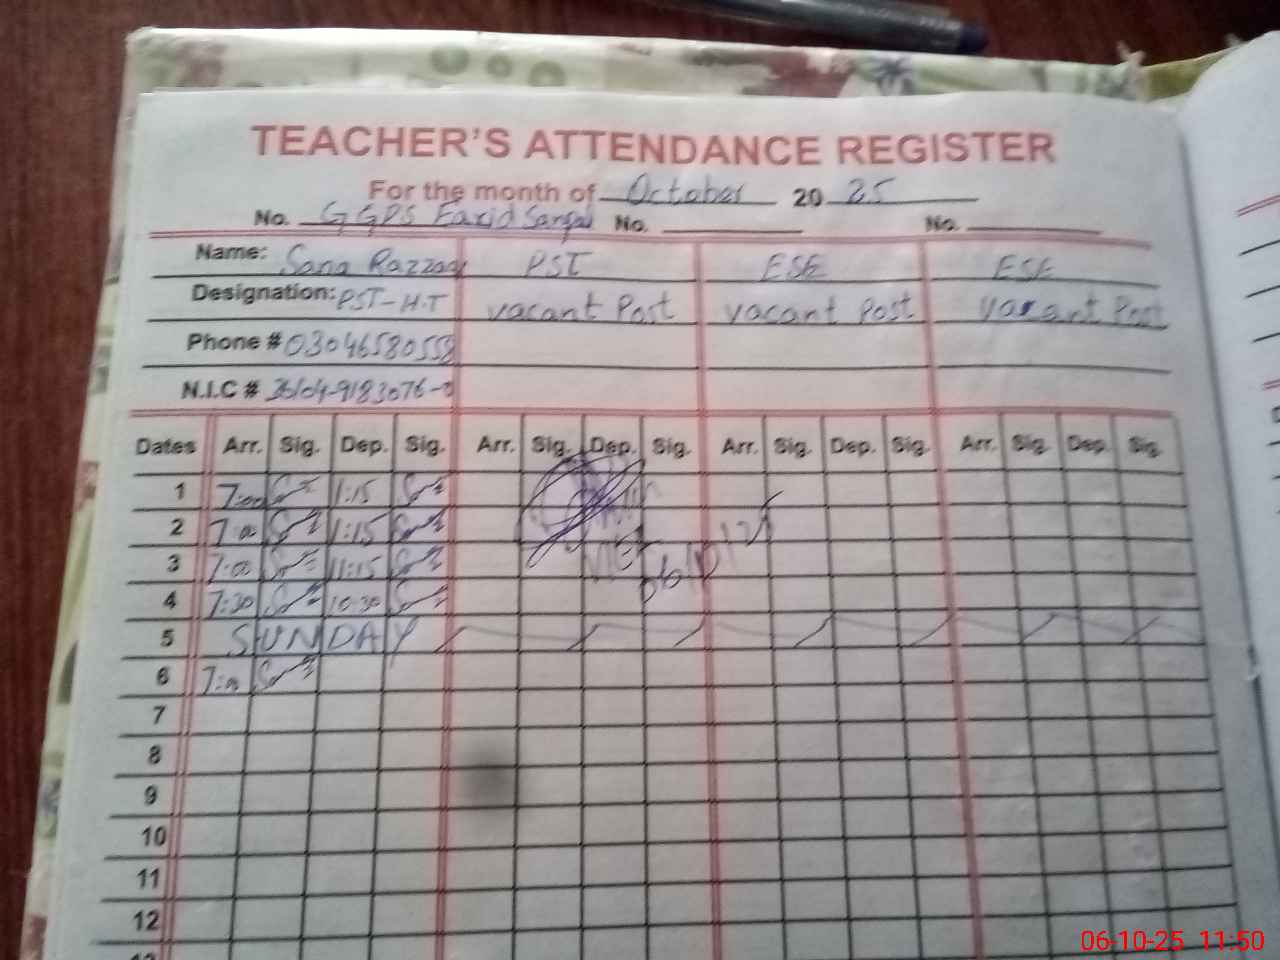 TEACHER'S ATTENDANCE REGISTER
For the month of October 20 25
No. GGPS Farid No. No.
Name: Sana Razzaq PST ESE ESE
Designation: PST-H.T vacant Post vacant Post vacant Post
Phone # 03046580558
N.I.C #
Dates Arr. Sig. Dep. Sig. Arr. Sig. Dep. Sig. Arr. Sig. Dep. Sig. Arr. Sig. Dep. Sig.
1 7:00 1:15
2 7:00 1:15
3 7:00 11:15
06/10/25
4 7:30 10:30
5 SUNDAY
6 7:00
7
8
9
10
11
12
13
06-10-25 11:50